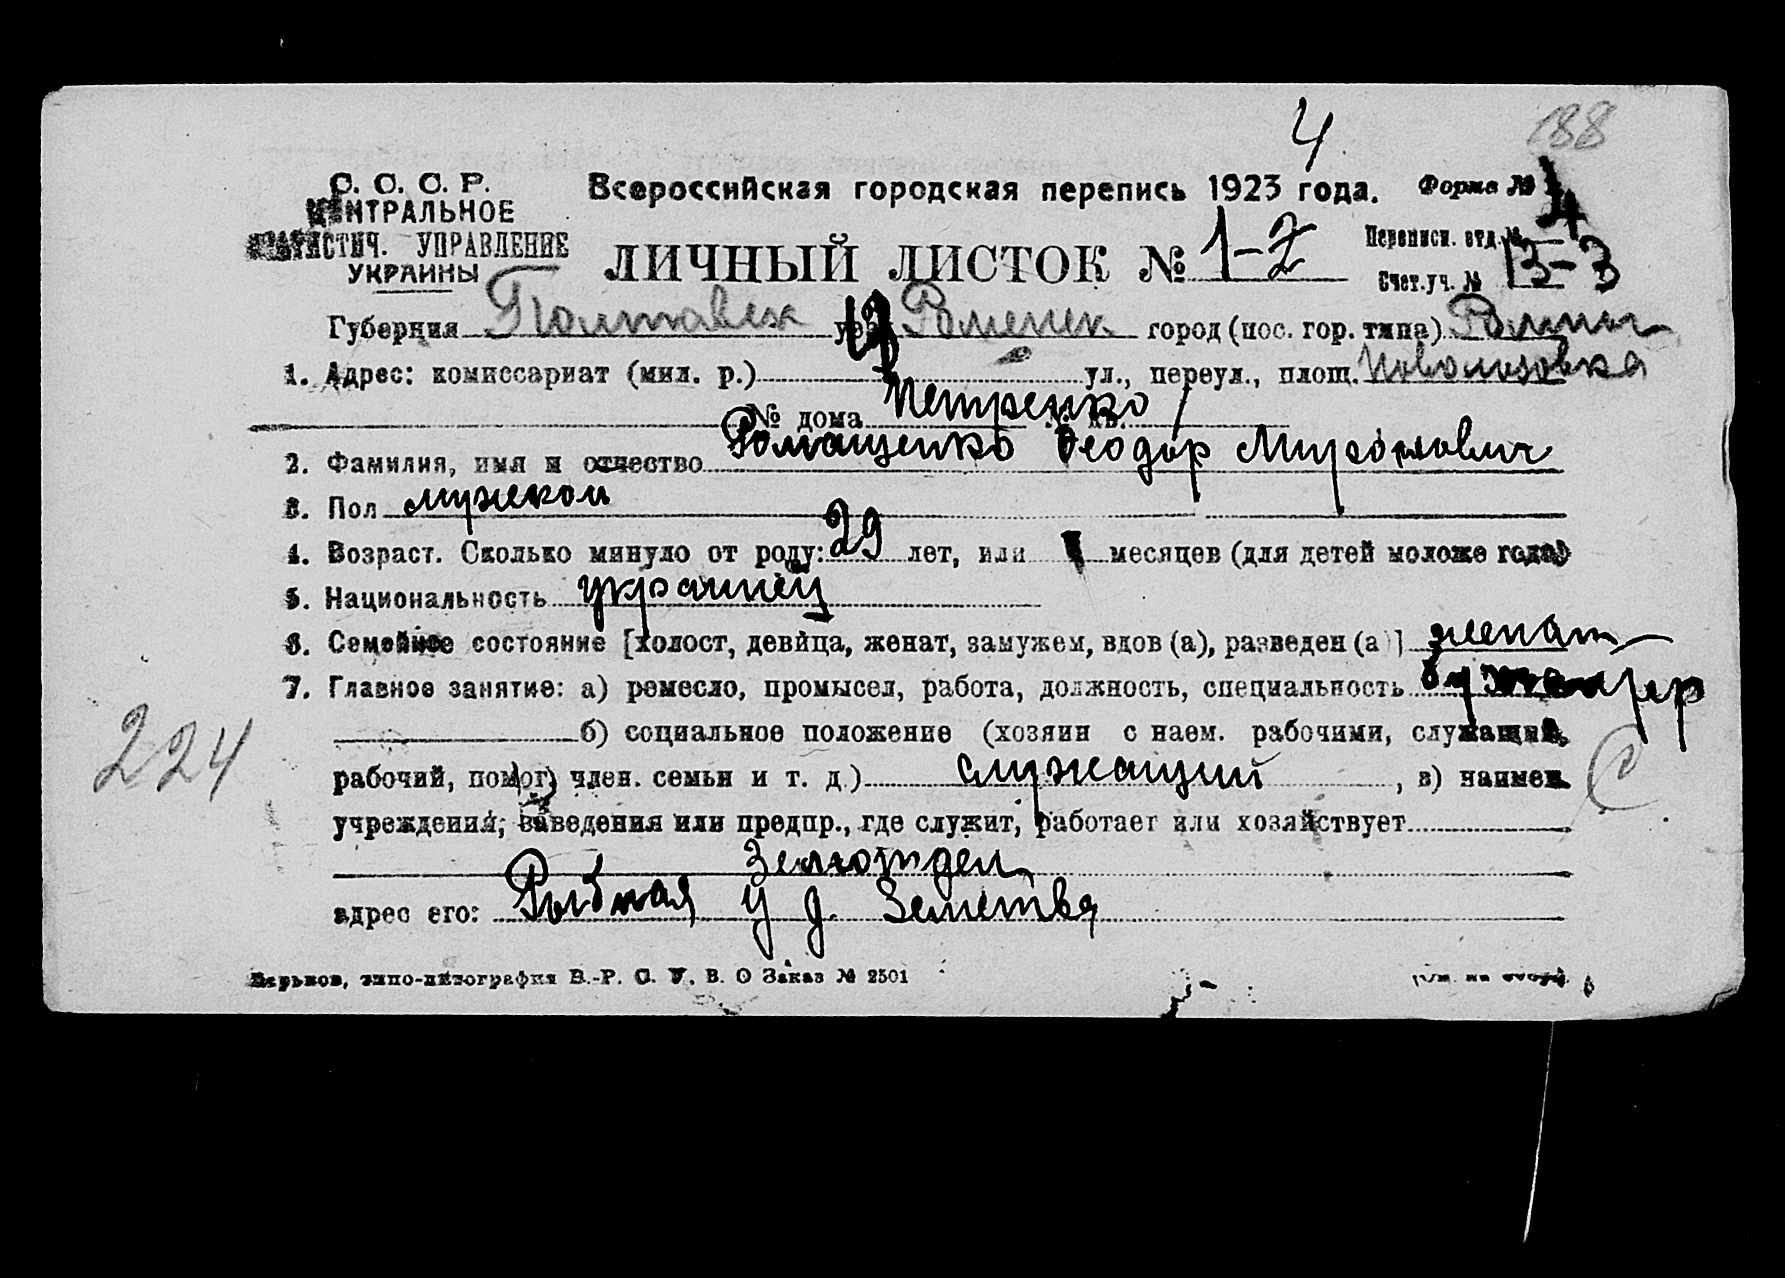 4 188
С. С. С. Р.
ЦЕНТРАЛЬНОЕ
СТАТИСТИЧ. УПРАВЛЕНИЕ
УКРАИНЫ
Всероссийская городская перепись 1923 года. Форма №
ЛИЧНЫЙ ЛИСТОК № 1-2
Переписн. отд. № 4
Счет.уч. № 13-3
Губерния Полтавск Роменск город (пос. гор. типа) Ромны
1. Адрес: комиссариат (мил. р.) ул., переул., площ.
№ дома Петренко № кв.
2. Фамилия, имя и отчество Ромащенко Феодор Миронович
3. Пол мужской
4. Возраст. Сколько минуло от роду: 29 лет, или месяцев (для детей моложе года)
5. Национальность украинец
6. Семейное состояние [холост, девица, женат, замужем, вдов (а), разведен (а)] женат
7. Главное занятие: а) ремесло, промысел, работа, должность, специальность
б) социальное положение (хозяин с наем. рабочими, служащий,
рабочий, помог. член. семьи и т. д.) служащий, в) наимен.
учреждения, заведения или предпр., где служит, работает или хозяйствует
Земотдел
адрес его: Рыбная у д. Земства
224
С
Харьков, типо-литография В.-Р. С. У. В. О Заказ № 2501